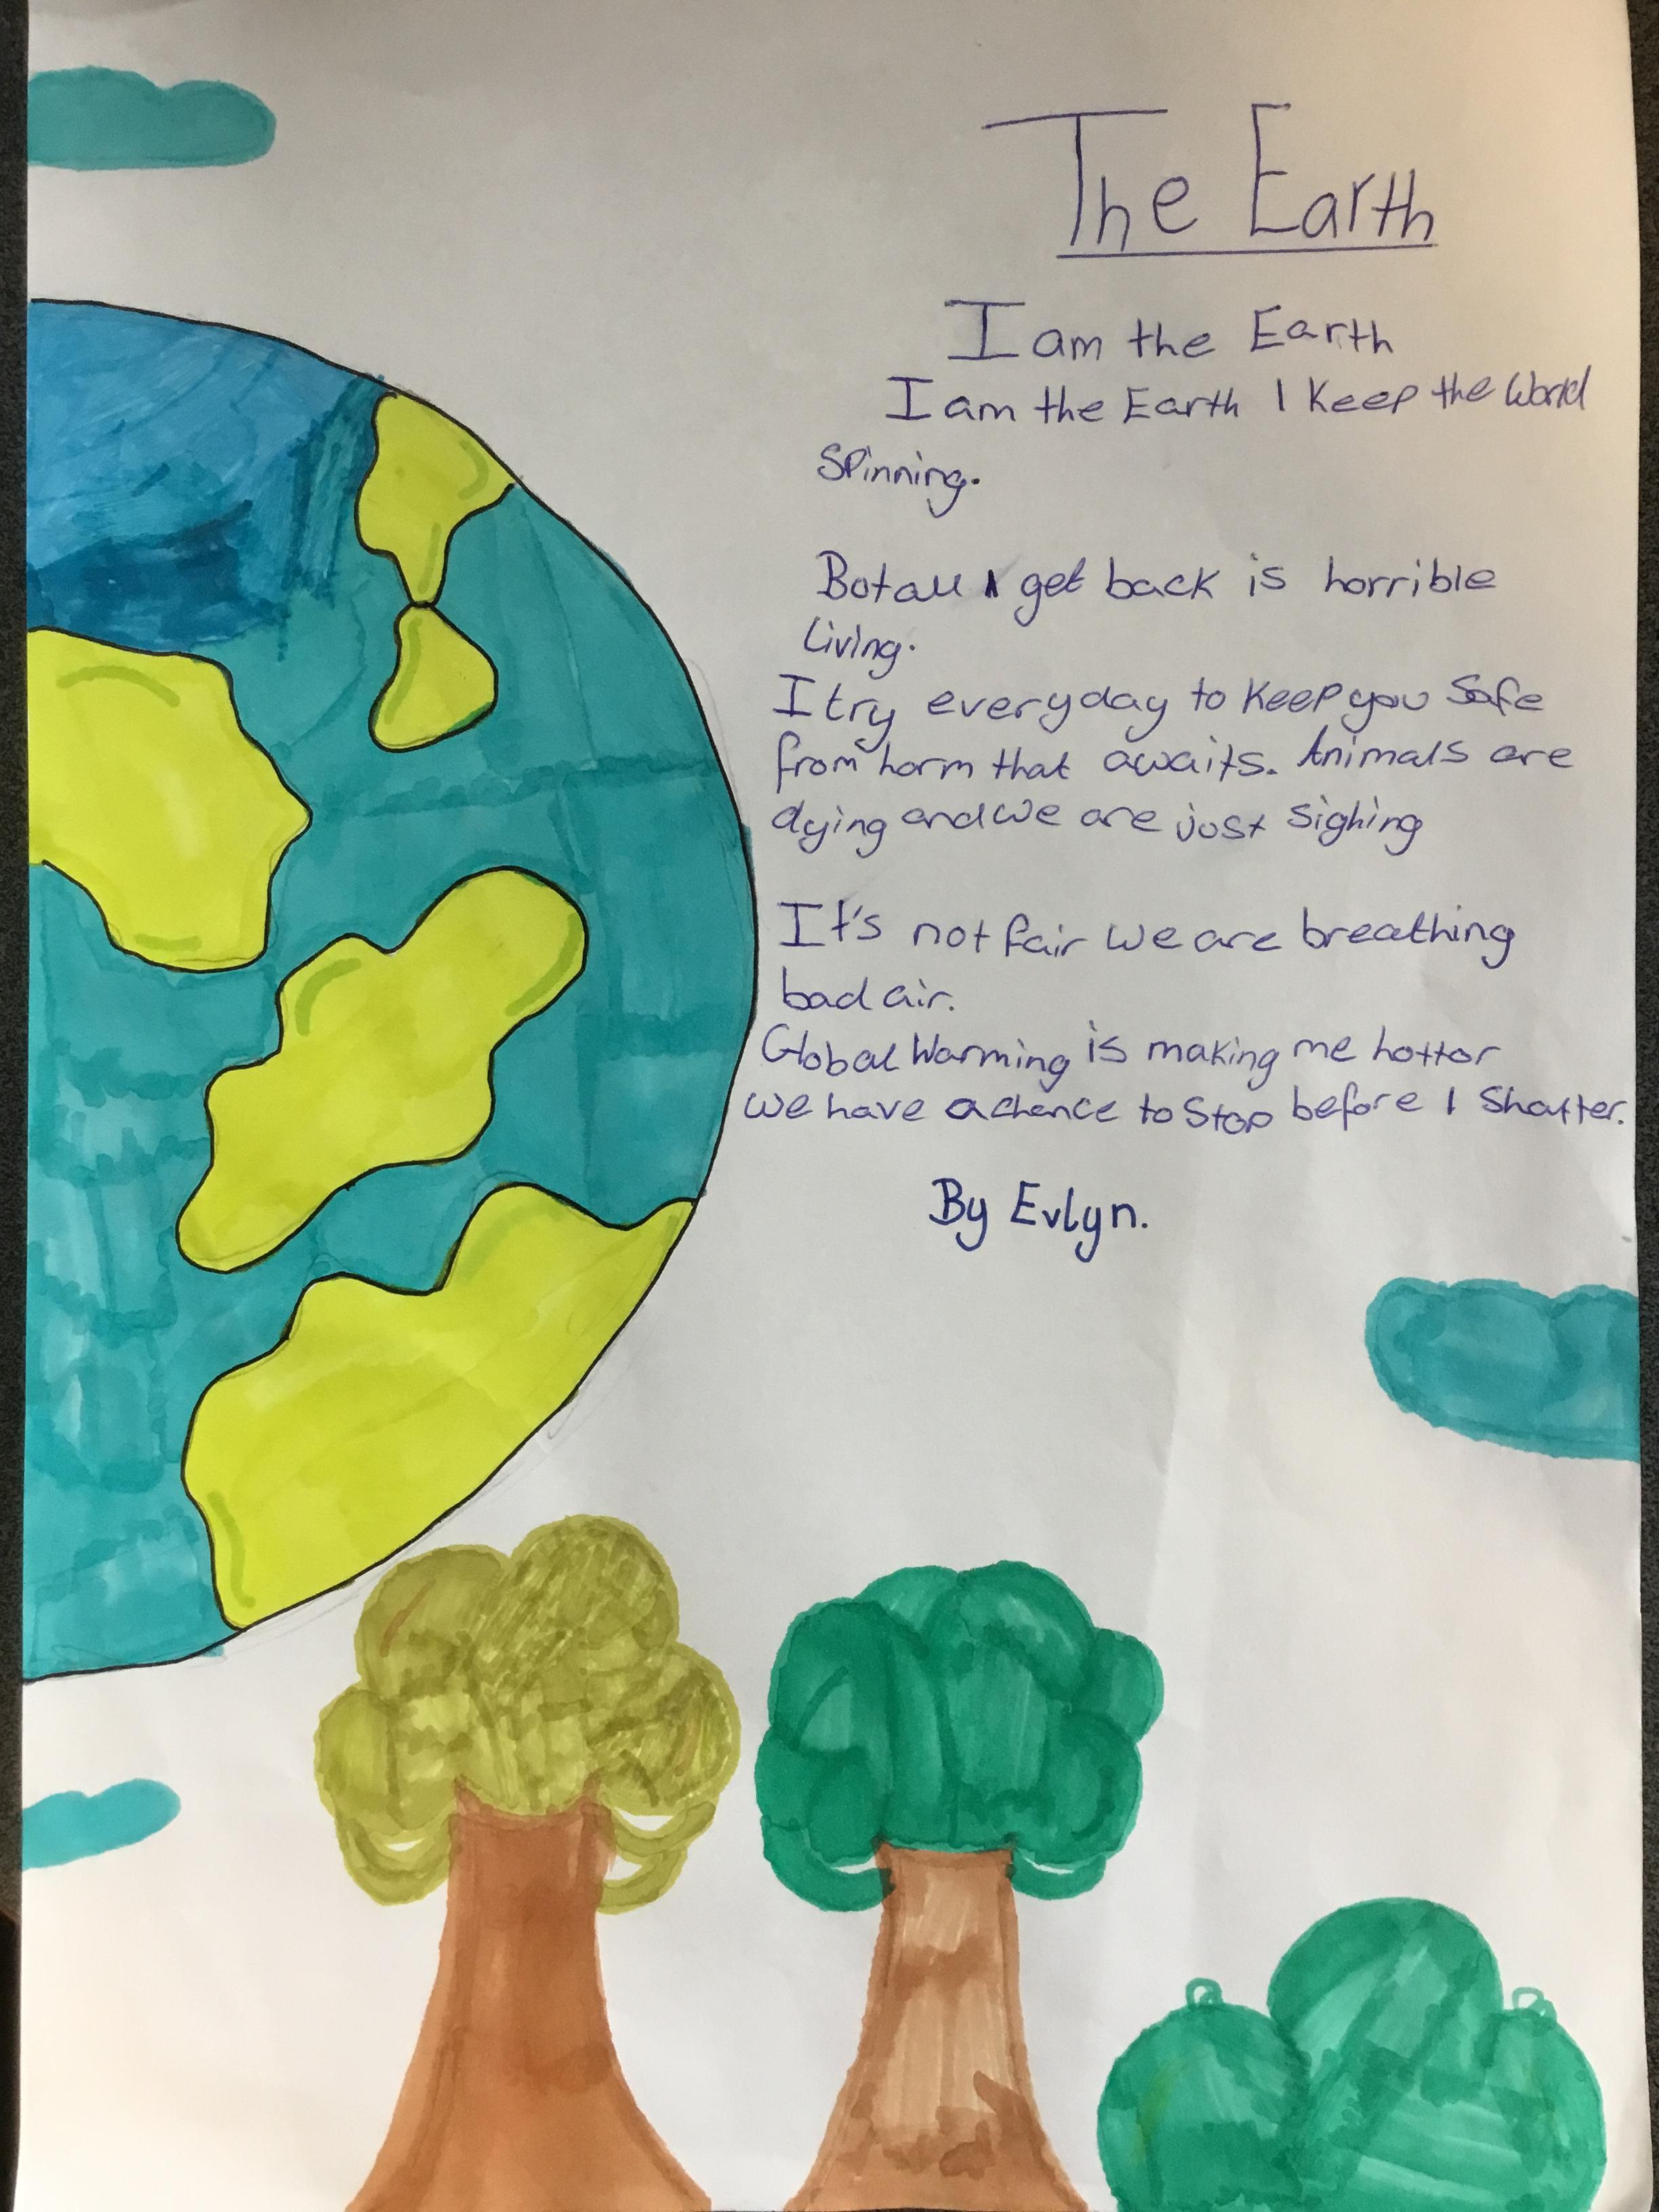 The Earth
I am the Earth
I am the Earth I keep the World
Spinning.
But all I get back is horrible
living.
I try everyday to keep you Safe
from harm that awaits. Animals are
dying and we are just sighing
It's not fair we are breathing
bad air.
Global Warming is making me hottor
we have a chance to Stop before I Shatter.
By Evlyn.